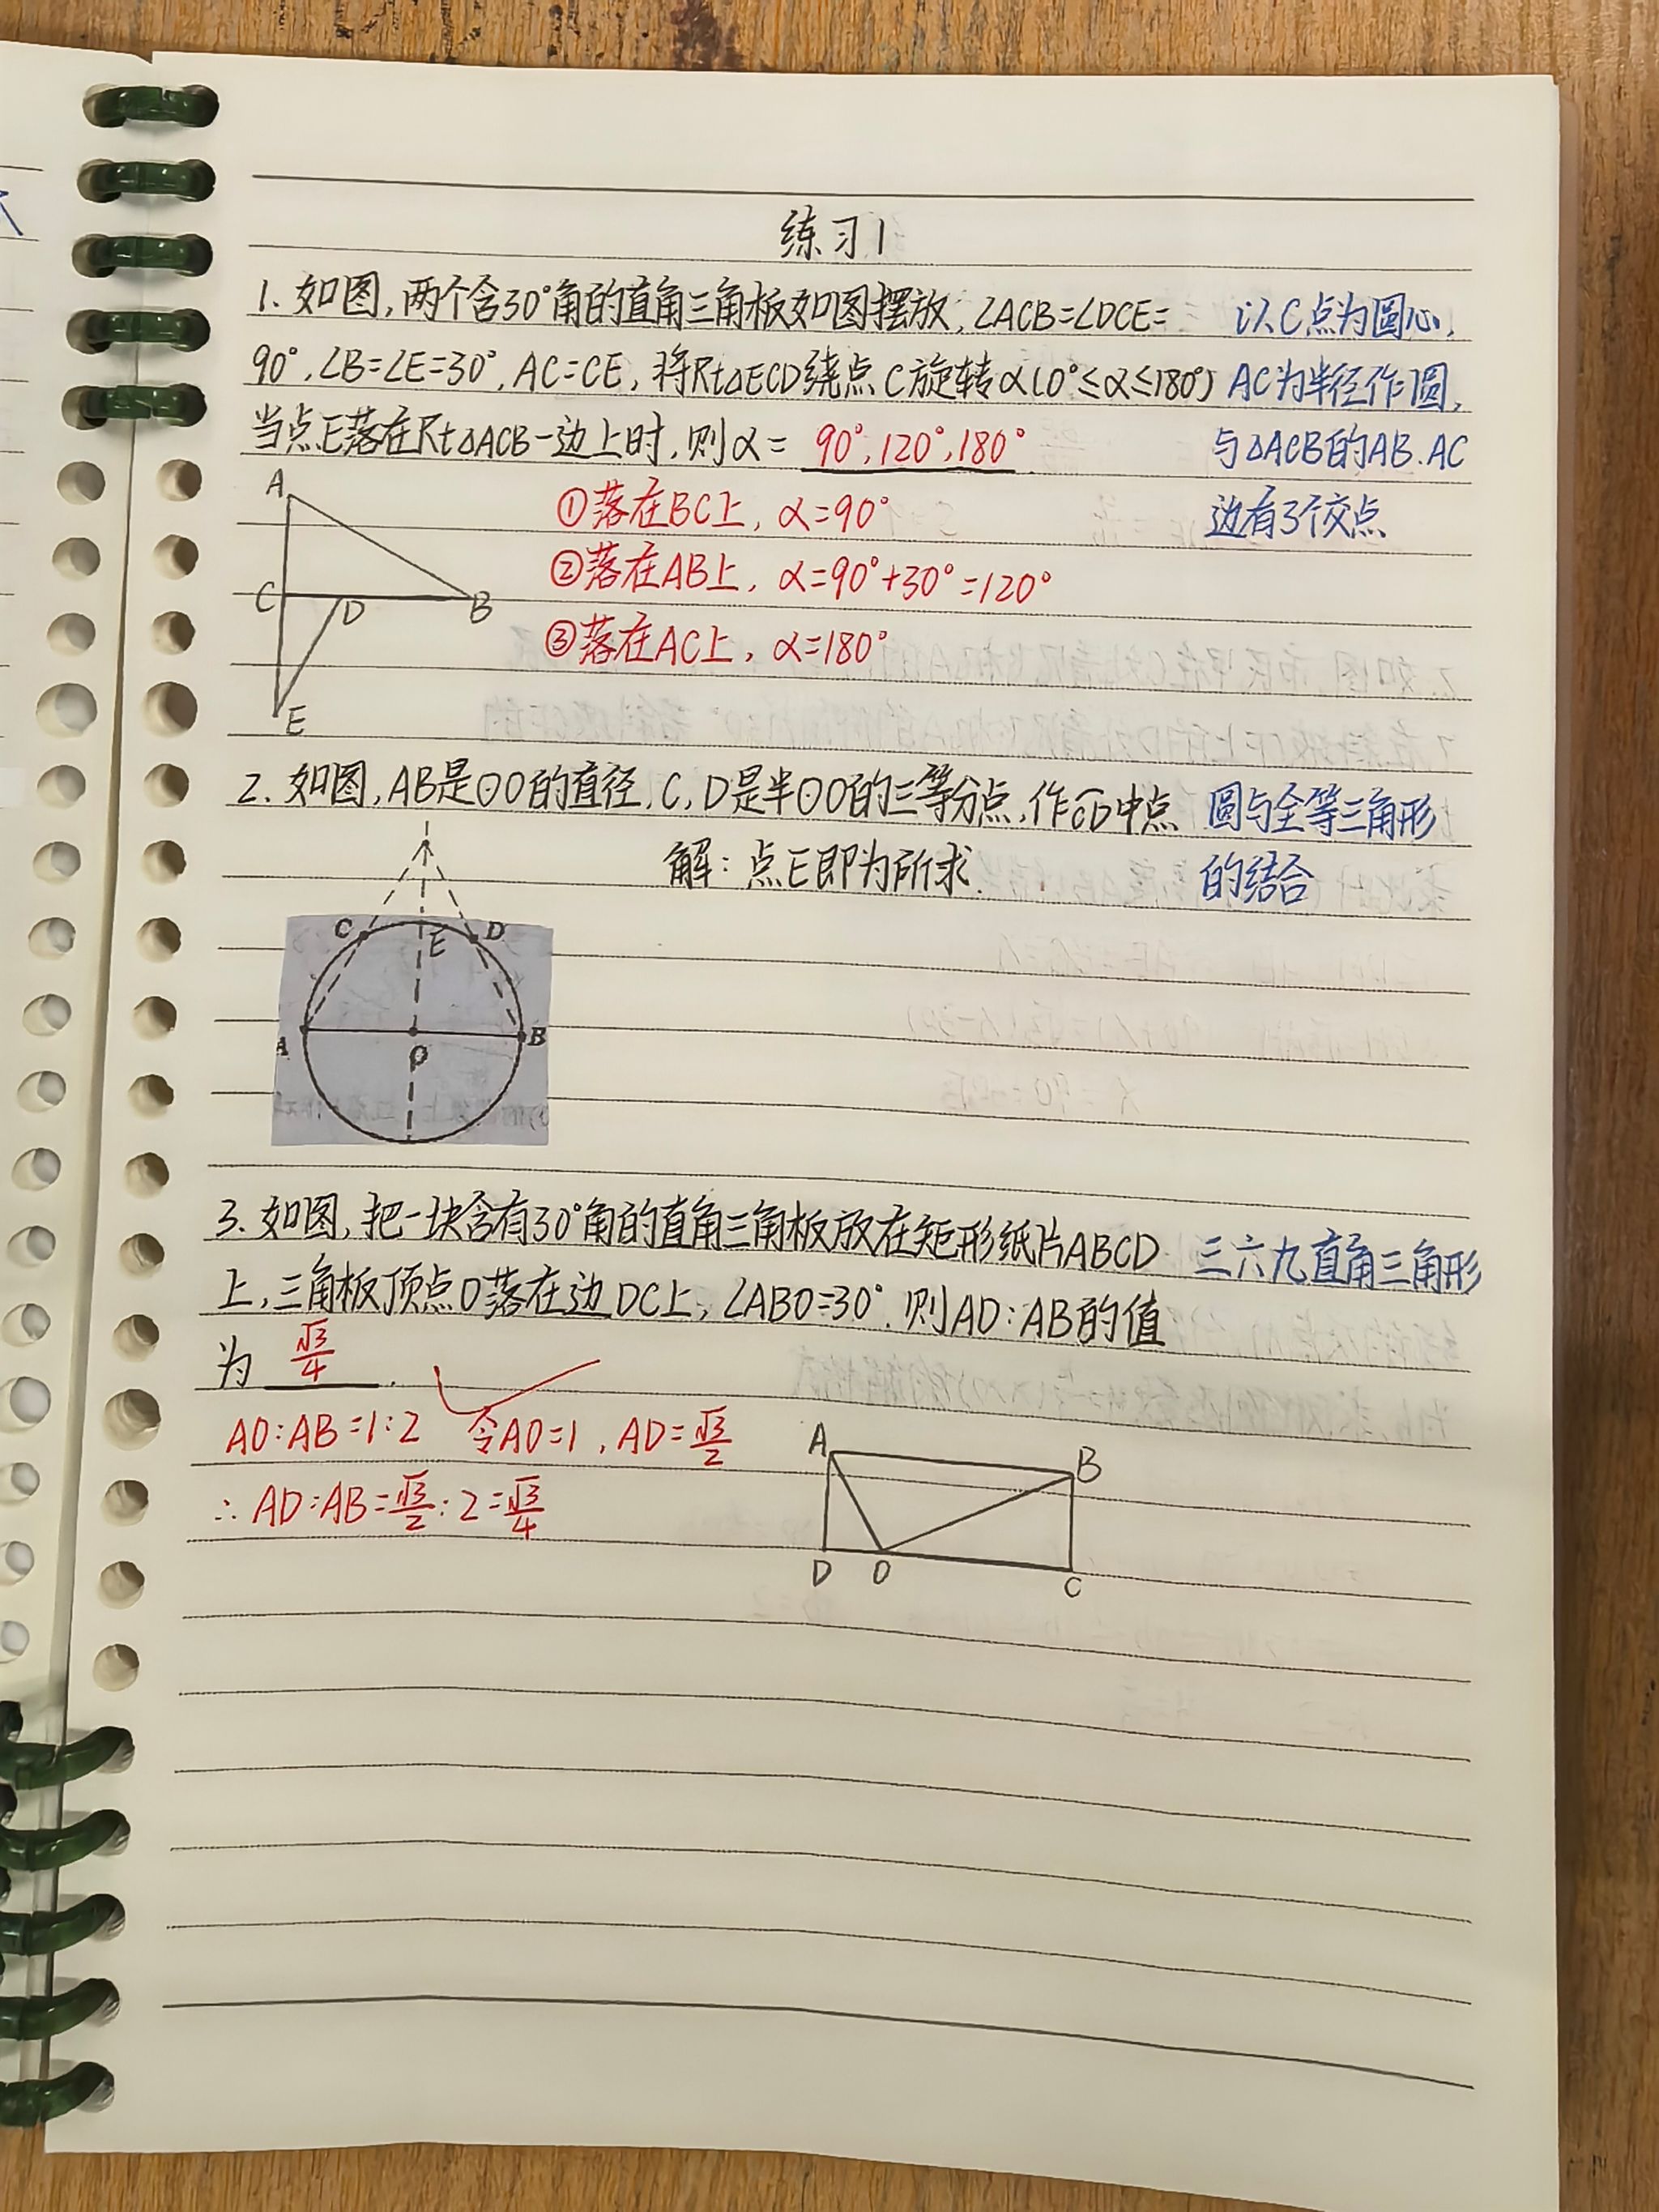 练习1
1. 如图,两个含30°角的直角三角板如图摆放,∠ACB=∠DCE=
以C点为圆心,
90°,∠B=∠E=30°,AC=CE,将Rt△ECD绕点C旋转α(0°≤α≤180°)
AC为半径作圆,
当点E落在Rt△ACB一边上时,则α= 90°,120°,180°.
与△ACB的AB.AC
边有3个交点
①落在BC上,α=90°
②落在AB上,α=90°+30°=120°
③落在AC上,α=180°
A
C
D
B
E
2. 如图,AB是⊙O的直径,C,D是半⊙O的三等分点,作CD中点
圆与全等三角形
解:点E即为所求.
的结合
C
E
D
A
O
B
3. 如图,把一块含有30°角的直角三角板放在矩形纸片ABCD
三六九直角三角形
上,三角板顶点O落在边DC上,∠ABO=30°.则AD:AB的值
为 √3/4.
AO:AB=1:2 令AO=1,AD=√3/2
∴AD:AB=√3/2:2=√3/4
A
B
D
O
C